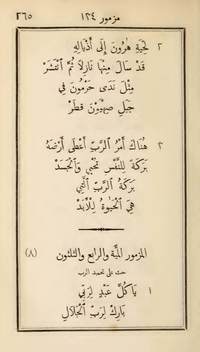 مزمور ١٣٤
٢٦٥
٢ لِحْيَةِ هٰرُونَ إِلَى أَذْيَالِهِ
قَدْ سَالَ مِنْهَا نَازِلًا ثُمَّ ٱنْتَشَرْ
مِثْلَ نَدَى حَرْمُونَ فِي
جَبَلِ صِهْيَوْنَ قَطَرْ
٣ هُنَاكَ أَمْرُ ٱلرَّبِّ أَعْطَى أَرْضَهُ
بَرَكَةً لِلنَّفْسِ تُحْيِي وَٱلْجَسَدْ
بَرَكَةُ ٱلرَّبِّ ٱلَّتِي
هِيَ ٱلْحَيٰوةُ لِلْأَبَدْ
المزمور المئة والرابع والثلثون (٨)
حث على تمجيد الرب
١ يَا كُلَّ عَبْدٍ لِرَبِّي
بَارِكْ لِرَبِّ ٱلْجَلَالِ